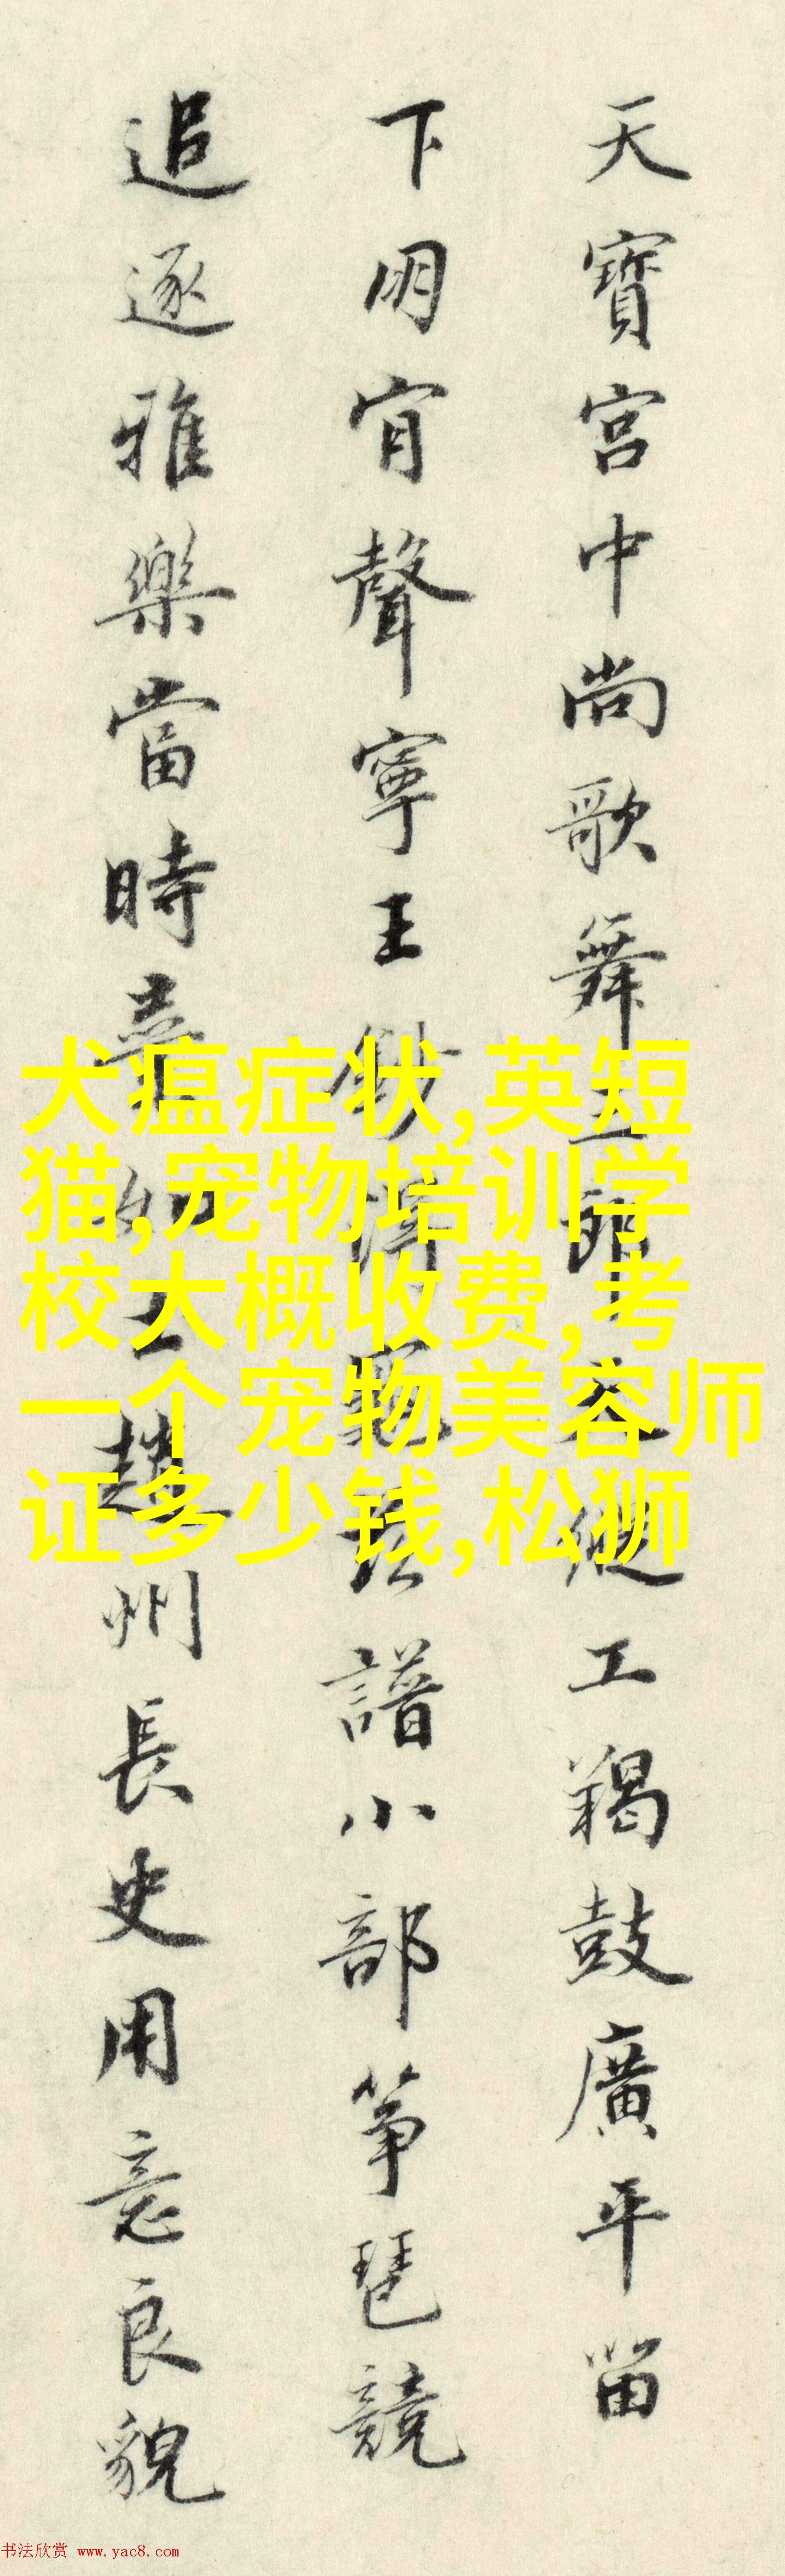 天寶宮中尚歌舞三郎天縱工羯鼓廣平留
下朋肯聲寧王譯龜茲譜小部箏琵競
追逐雅樂當時棄如土趙州長史用意良貌
犬瘟症状,英短
猫,宠物培训学
校大概收费,考
一个宠物美容师
证多少钱,松狮
书法欣赏 www.yac8.com